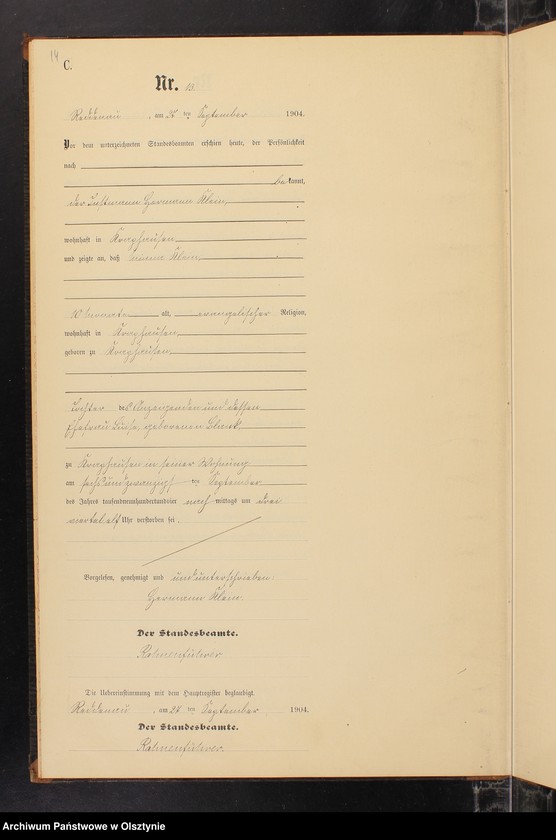 14
C.
Nr.
Reddenau, am ten September 1904.
Vor dem unterzeichneten Standesbeamten erschien heute, der Persönlichkeit
nach
bekannt,
der Instmann Hermann Klein,
wohnhaft in
und zeigte an, daß Klein,
10 Monate alt, evangelischer Religion,
wohnhaft in
geboren zu
Tochter des Anzeigenden und dessen
Ehefrau Luise, geborenen
zu in seiner Wohnung
am sechsundzwanzigsten ten September
des Jahres tausendneunhundertundvier nach mittags um drei
viertel elf Uhr verstorben sei.
Vorgelesen, genehmigt und und unterschrieben
Hermann Klein.
Der Standesbeamte.
Die Uebereinstimmung mit dem Hauptregister beglaubigt.
Reddenau, am ten September 1904.
Der Standesbeamte.
Archiwum Państwowe w Olsztynie